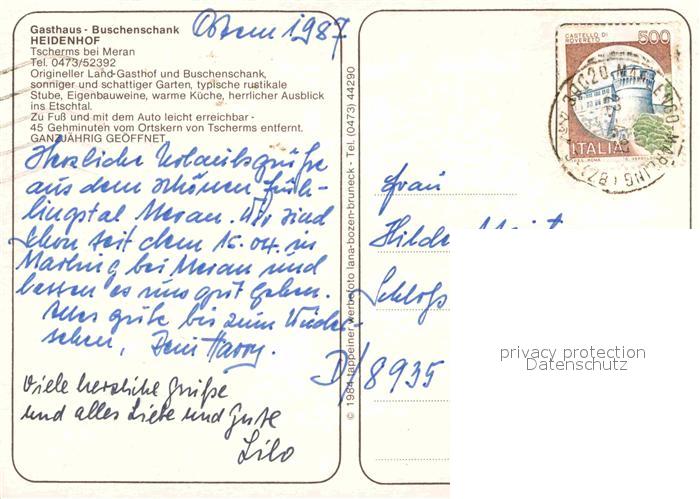 Gasthaus - Buschenschank
HEIDENHOF
Tscherms bei Meran
Tel. 0473/52392
Origineller Land-Gasthof und Buschenschank,
sonniger und schattiger Garten, typische rustikale
Stube, Eigenbauweine, warme Küche, herrlicher Ausblick
ins Etschtal.
Zu Fuß und mit dem Auto leicht erreichbar -
45 Gehminuten vom Ortskern von Tscherms entfernt.
GANZJÄHRIG GEÖFFNET.
Ostern 1987
Herzliche Urlaubsgrüße
aus dem schönen Früh-
lingstal Meran. Wir sind
schon seit dem 15.04. in
Marling bei Meran und
lassen es uns gut gehen.
Alles gute bis zum Wieder-
sehen, Dein Harry.
Viele herzliche Grüße
und alles Liebe und Gute
Lilo
© 1984 tappeiner werbefoto lana-bozen-bruneck - Tel. (0473) 44290
CASTELLO DI
ROVERETO
500
ITALIA
39020 MARLENGO - MARLING (BZ)
Frau
Hilde
Schloß
D/8935
privacy protection
Datenschutz